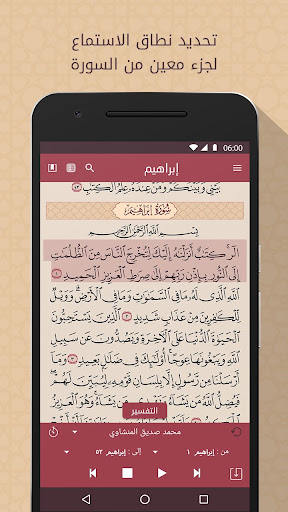 تحديد نطاق الاستماع
لجزء معين من السورة
06:00
إبراهيم
بَيْنِي وَبَيْنَكُمْ وَمَنْ عِندَهُۥ عِلْمُ ٱلْكِتَٰبِ ٤٣
سُورَةُ إِبْرَاهِيمَ
بِسْمِ ٱللَّهِ ٱلرَّحْمَٰنِ ٱلرَّحِيمِ
الٓر كِتَٰبٌ أَنزَلْنَٰهُ إِلَيْكَ لِتُخْرِجَ ٱلنَّاسَ مِنَ ٱلظُّلُمَٰتِ
إِلَى ٱلنُّورِ بِإِذْنِ رَبِّهِمْ إِلَىٰ صِرَٰطِ ٱلْعَزِيزِ ٱلْحَمِيدِ ١
ٱللَّهِ ٱلَّذِي لَهُۥ مَا فِي ٱلسَّمَٰوَٰتِ وَمَا فِي ٱلْأَرْضِ وَوَيْلٌ
لِّلْكَٰفِرِينَ مِنْ عَذَابٍ شَدِيدٍ ٢ ٱلَّذِينَ يَسْتَحِبُّونَ
ٱلْحَيَوٰةَ ٱلدُّنْيَا عَلَى ٱلْءَاخِرَةِ وَيَصُدُّونَ عَن سَبِيلِ
ٱللَّهِ وَيَبْغُونَهَا عِوَجًا أُو۟لَٰٓئِكَ فِي ضَلَٰلٍۭ بَعِيدٍ ٣ وَمَآ
أَرْسَلْنَا مِن رَّسُولٍ إِلَّا بِلِسَانِ قَوْمِهِۦ لِيُبَيِّنَ لَهُمْ
فَيُضِلُّ ٱللَّهُ مَن يَشَآءُ وَيَهْدِي مَن يَشَآءُ وَهُوَ ٱلْعَزِيزُ
التفسير
محمد صديق المنشاوي
من : إبراهيم ١
إلى: إبراهيم ٥٢